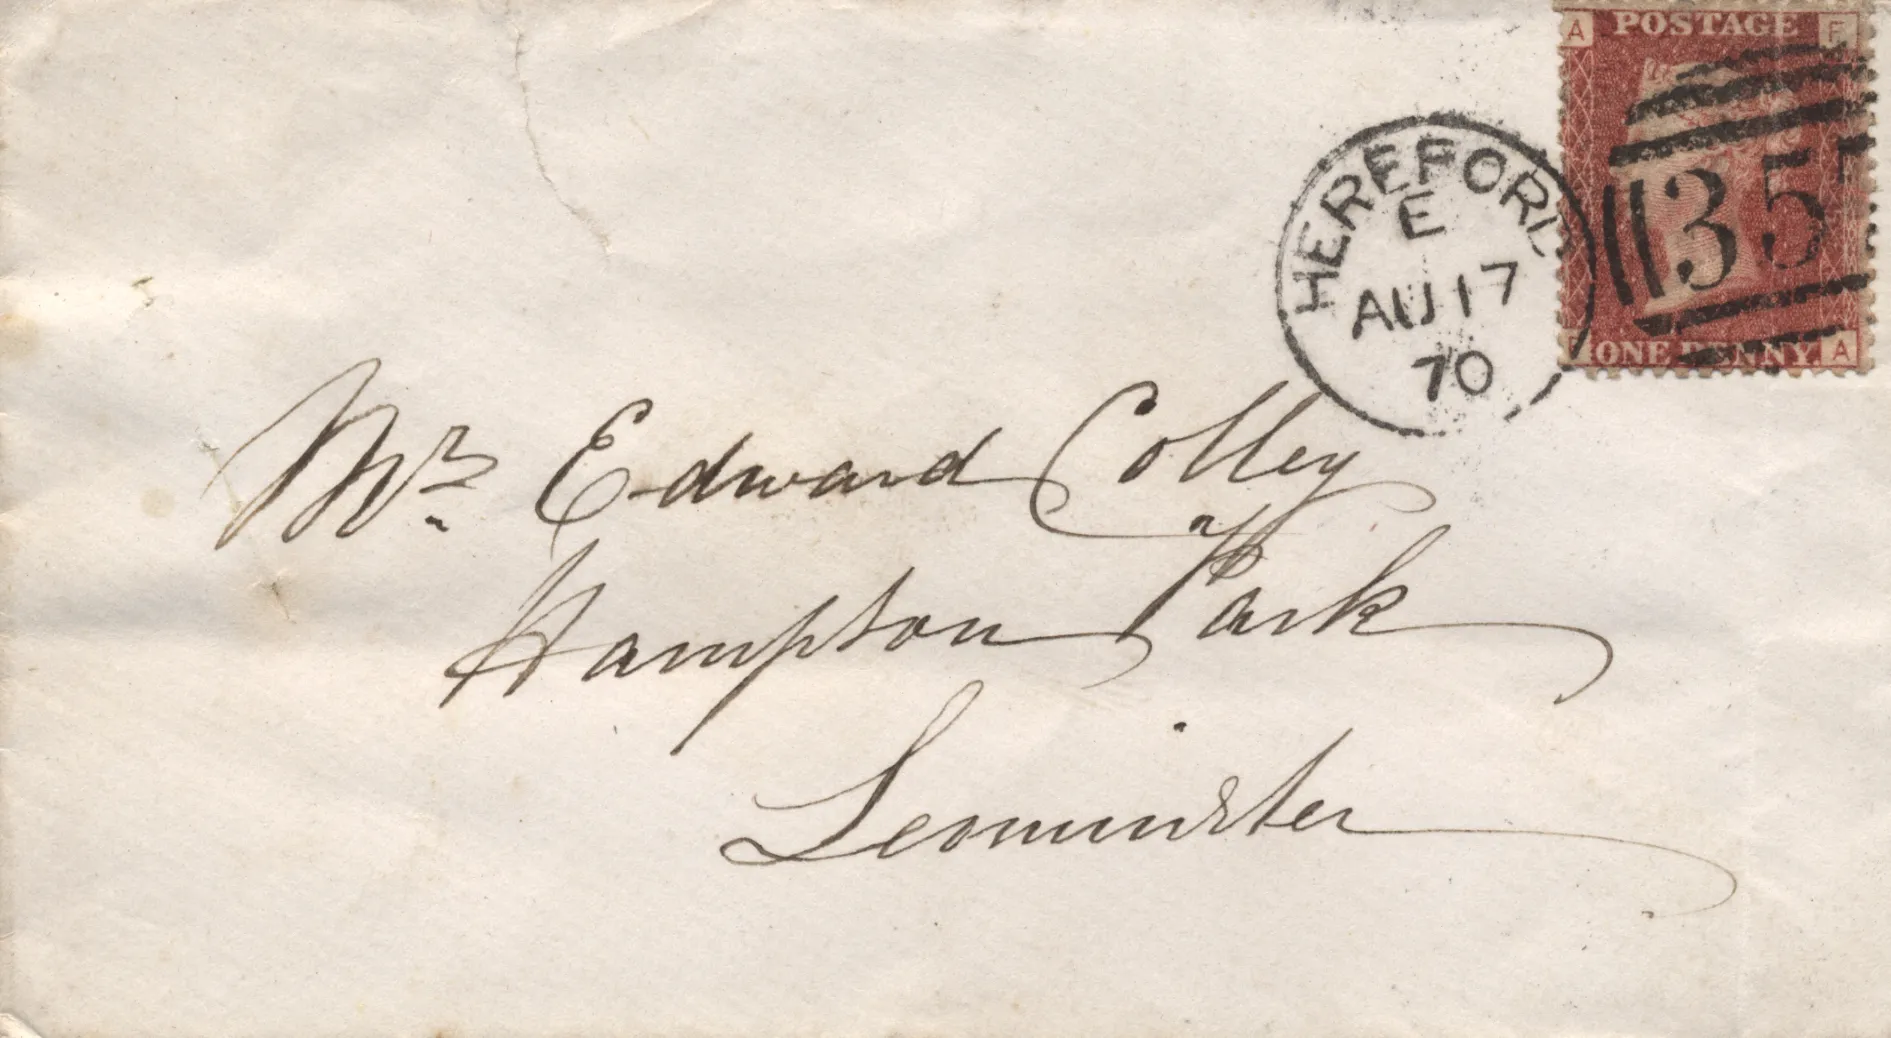 A POSTAGE F
HEREFORD
E
AU 17
70
35
ONE PENNY A
Mr. Edward Colley
Hampton Park
Leominster